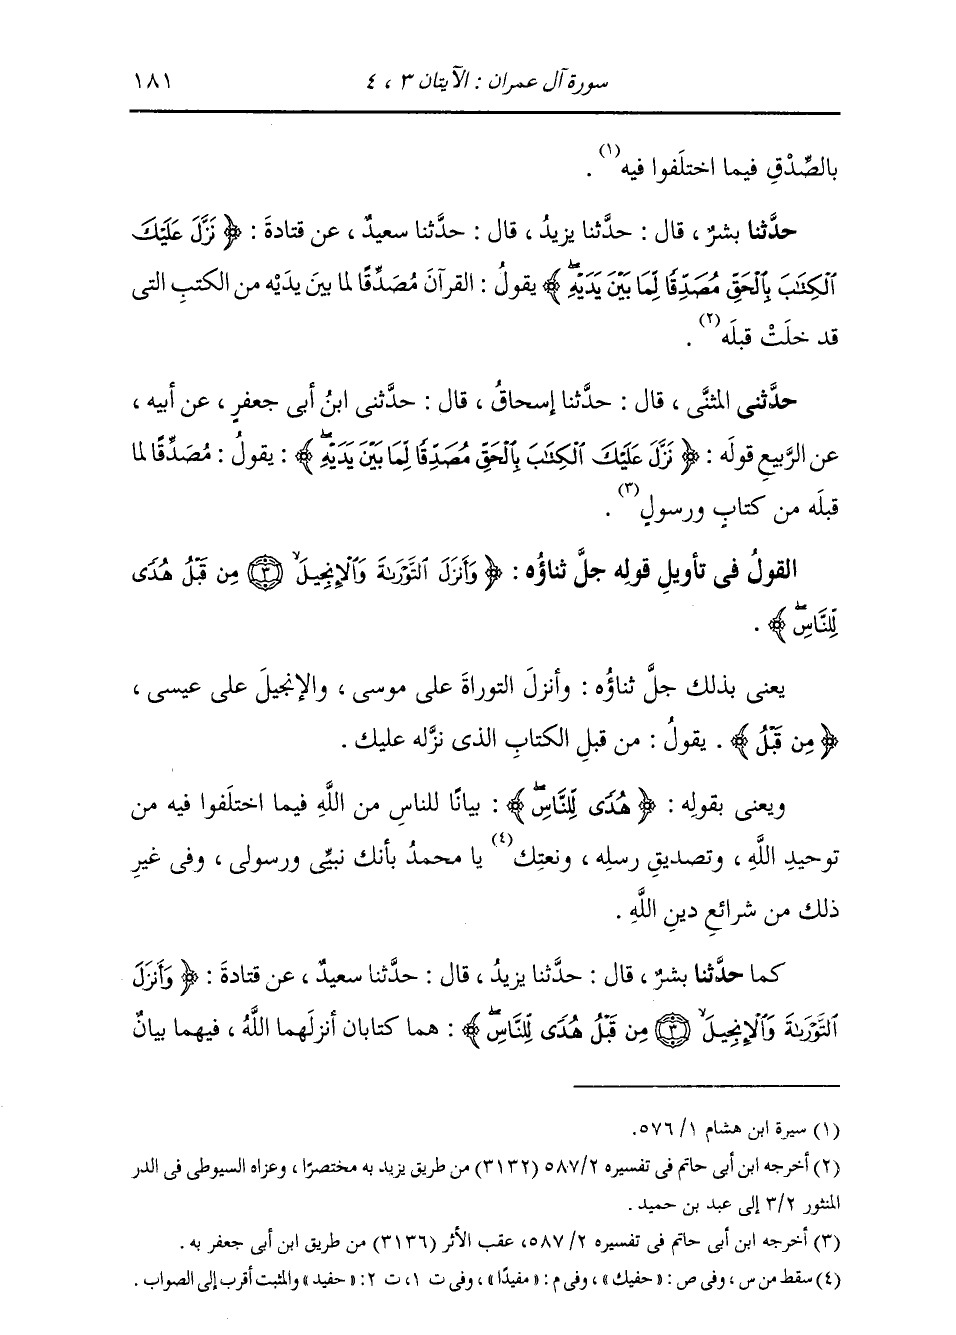 سورة آل عمران : الآيتان ٣ ، ٤ ١٨١
بالصِّدْقِ فيما اختلَفوا فيه(١) .
حدَّثنا بشرٌ ، قال : حدَّثنا يزيدُ ، قال : حدَّثنا سعيدٌ ، عن قتادةَ : ﴿ نَزَّلَ عَلَيْكَ
ٱلْكِتَٰبَ بِٱلْحَقِّ مُصَدِّقًا لِّمَا بَيْنَ يَدَيْهِۖ ﴾ يقولُ : القرآنَ مُصَدِّقًا لما بينَ يدَيْه من الكتبِ التى
قد خلَتْ قبلَه(٢) .
حدَّثنى المثنَّى ، قال : حدَّثنا إسحاقُ ، قال : حدَّثنى ابنُ أبى جعفرٍ ، عن أبيه ،
عن الرَّبيعِ قولَه : ﴿ نَزَّلَ عَلَيْكَ ٱلْكِتَٰبَ بِٱلْحَقِّ مُصَدِّقًا لِّمَا بَيْنَ يَدَيْهِۖ ﴾ : يقولُ : مُصَدِّقًا لما
قبلَه من كتابٍ ورسولٍ(٣) .
القولُ فى تأويلِ قولِه جلَّ ثناؤُه : ﴿ وَأَنزَلَ ٱلتَّوْرَىٰةَ وَٱلْإِنجِيلَۙ ٣ مِن قَبْلُ هُدًى
لِّلنَّاسِۖ ﴾ .
يعنى بذلك جلَّ ثناؤُه : وأنزلَ التوراةَ على موسى ، والإنجيلَ على عيسى ،
﴿ مِن قَبْلُ ﴾ . يقولُ : من قبلِ الكتابِ الذى نزَّله عليك .
ويعنى بقولِه : ﴿ هُدًى لِّلنَّاسِۖ ﴾ : بيانًا للناسِ من اللَّهِ فيما اختلَفوا فيه من
توحيدِ اللَّهِ ، وتصديقِ رسلِه ، ونعتِك(٤) يا محمدُ بأنك نبيِّى ورسولى ، وفى غيرِ
ذلك من شرائعِ دينِ اللَّهِ .
كما حدَّثنا بشرٌ ، قال : حدَّثنا يزيدُ ، قال : حدَّثنا سعيدٌ ، عن قتادةَ : ﴿ وَأَنزَلَ
ٱلتَّوْرَىٰةَ وَٱلْإِنجِيلَۙ ٣ مِن قَبْلُ هُدًى لِّلنَّاسِۖ ﴾ : هما كتابان أنزلَهما اللَّهُ ، فيهما بيانٌ
(١) سيرة ابن هشام ١/ ٥٧٦.
(٢) أخرجه ابن أبى حاتم فى تفسيره ٥٨٧/٢ (٣١٣٢) من طريق يزيد به مختصرًا ، وعزاه السيوطى فى الدر
المنثور ٣/٢ إلى عبد بن حميد .
(٣) أخرجه ابن أبى حاتم فى تفسيره ٢/ ٥٨٧، عقب الأثر (٣١٣٦) من طريق ابن أبى جعفر به .
(٤) سقط من س ، وفى ص : « حفيك » ، وفى م : « مفيدًا » ، وفى ت ١، ت ٢: « حفيد » والمثبت أقرب إلى الصواب .